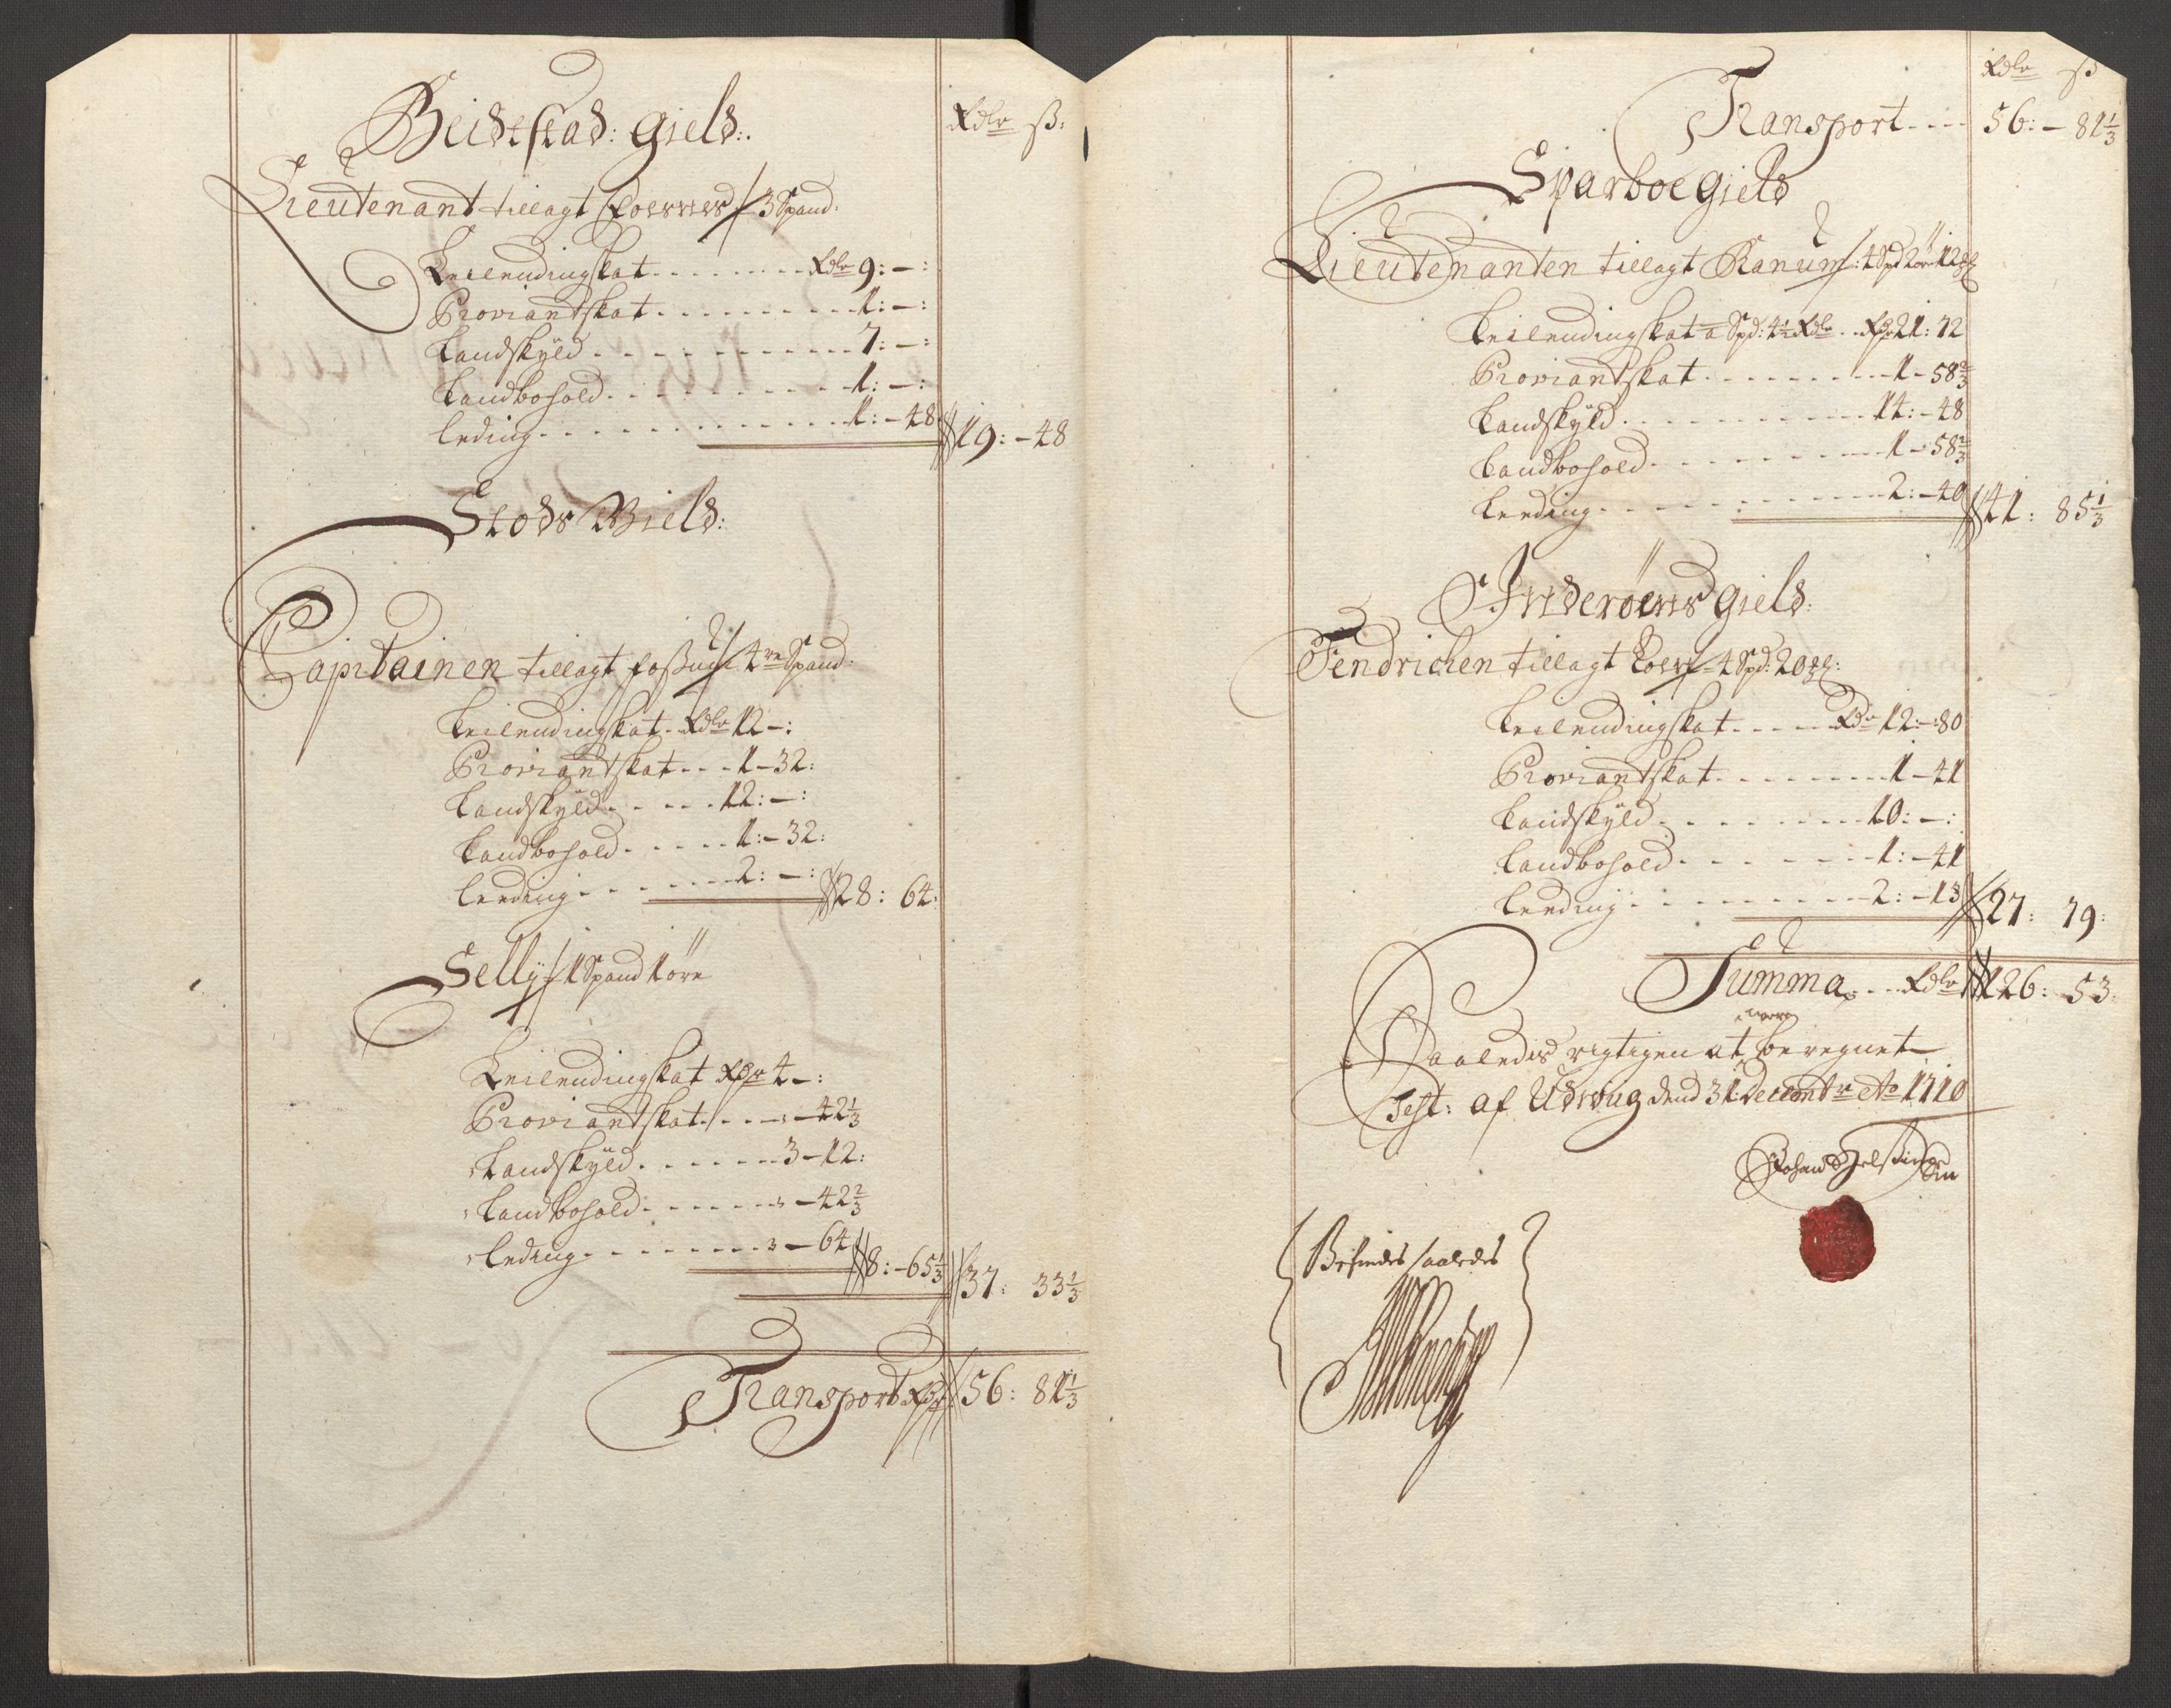 Rdlr ß:
Beidstad: Gield:
Lieutenant tillagt 3 Spand:
Leilendingskat Rdlr 9: – :
Proviantskat 1: – :
Landskyld 7: – :
Landbohold 1: – :
Leding 1: – 48 19: – 48
Stods Gield:
Capitainen tillagt foßum 4re Spand:
Leilendingskat Rdlr 12 – :
Proviantskat 1 – 32:
Landskyld 12: – :
Landbohold 1: – 32:
Leeding 2: – : 28: 64:
Selly 1 Spand 1 øre
Leilendingskat Rdr 4 – :
Proviantskat – 42 1/3
Landskyld 3 – 12:
Landbohold – 42 2/3
Leding – 64 8: – 65 1/3 37: 33 1/3
Transport Rdr 56: 81 1/3
Rdlr ß
Transport 56: – 81 1/3
Sparboe Gield
Lieutenanten tillagt Ranum: 4 Spd 2 ör 12
Leilendingskat a Spd: 4 1/2 Rdlr Rdr 21: 72
Proviantskat 1 – 58 2/3
Landskyld 14: – 48
Landbohold 1 – 58 2/3
Leeding 2: – 40 41: 85 1/3
Inderöens Gield:
Fendrichen tillagt 4 Spd: 20
Leilendingskat Rdr 12: – 80
Proviantskat 1 – 41
Landskyld 10: – :
Landbohold 1: – 41
Leeding 2: – 13 27: 79:
Summa Rdlr 126: 53:
være
Saaledis rigtigen at beregnet
Test: af Udvoug dend 31 Decembr Ao 1710
Johan
Befindes saaledes